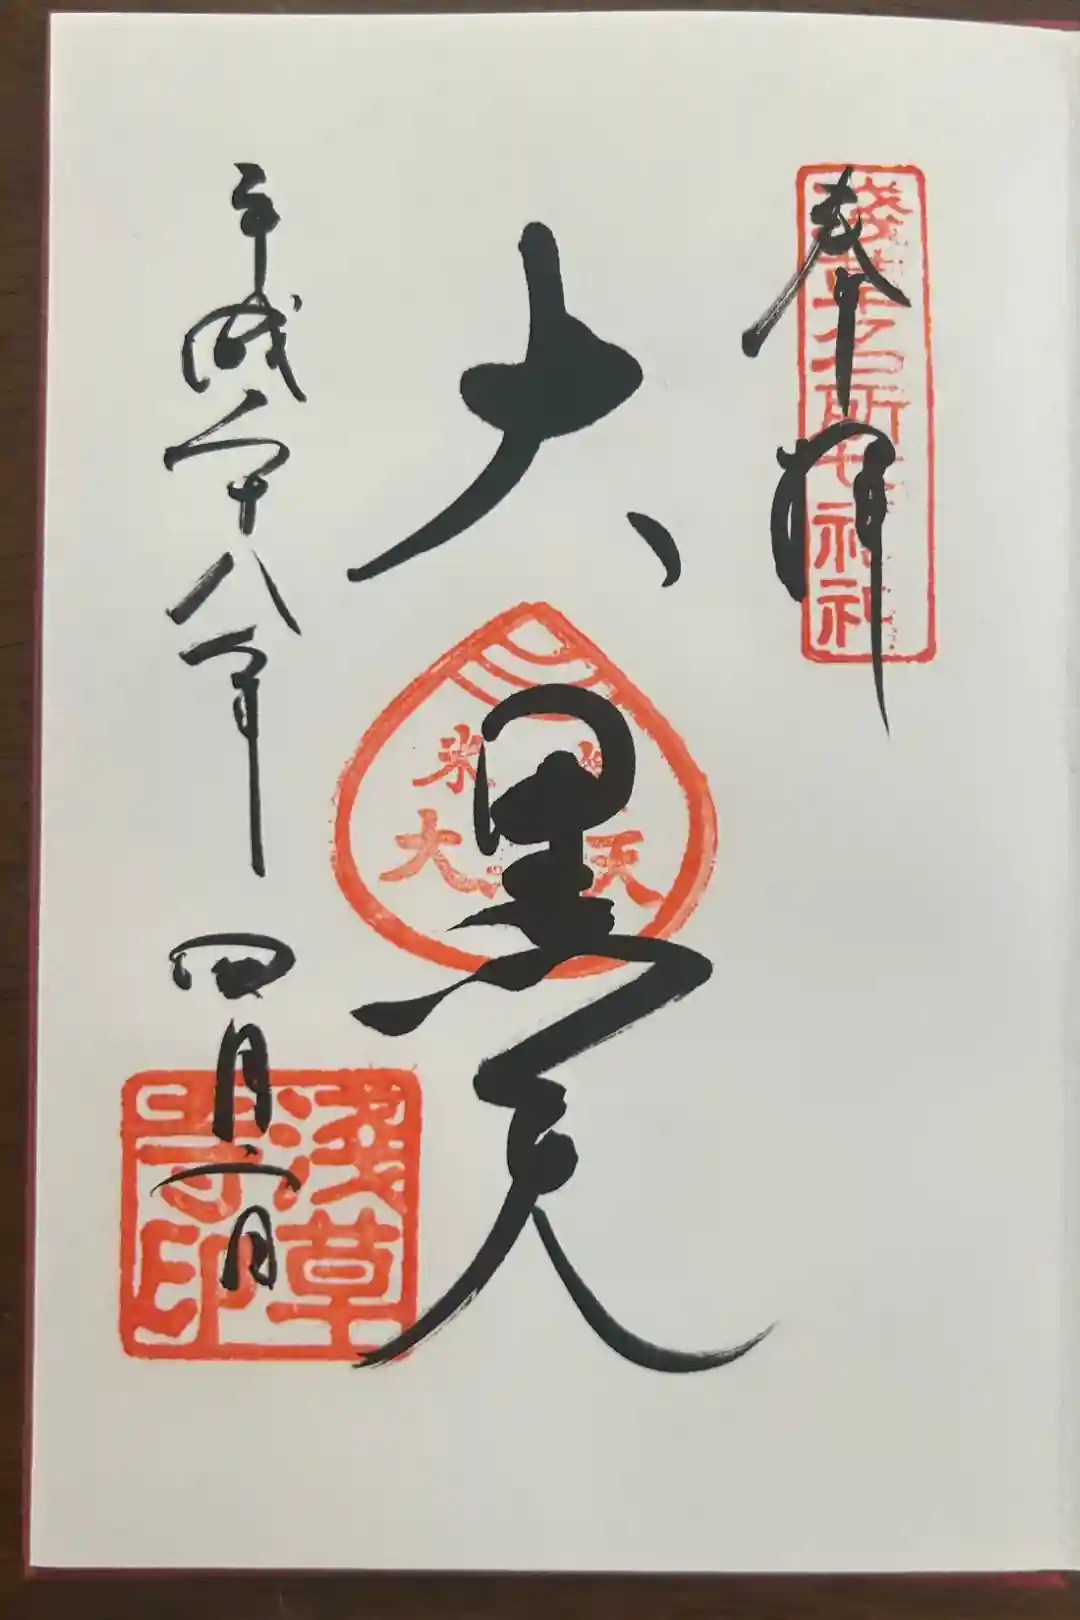 奉拝
浅草名所七福神
大黒天
米
大 天
平成二十八年四月二日
浅草
寺印